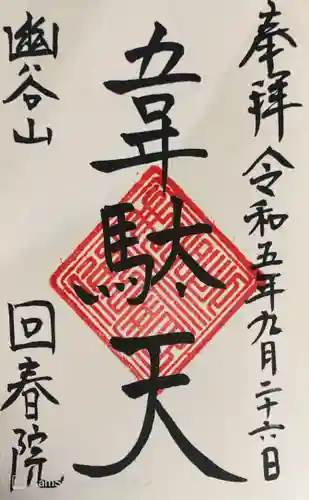 奉拝 令和五年九月二十六日
韋駄天
幽谷山 回春院